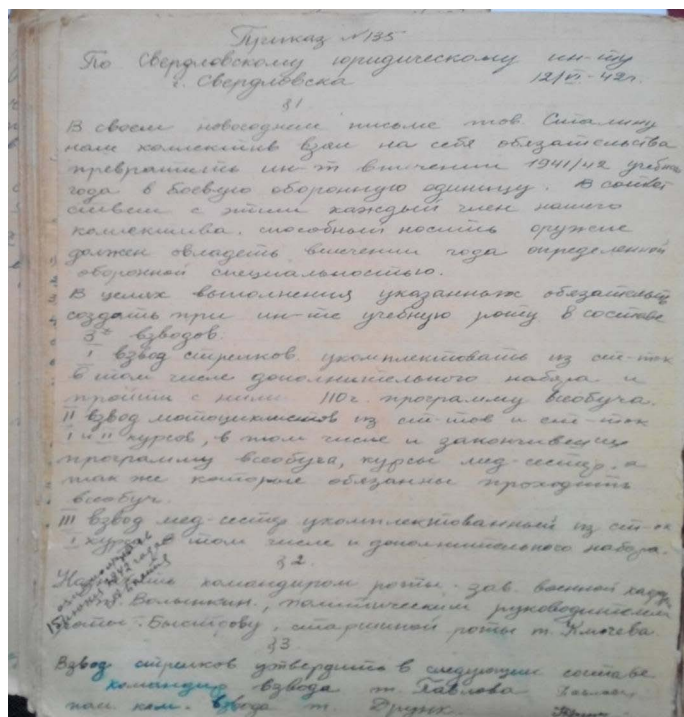 Приказ №135
По Свердловскому юридическому ин-ту
г. Свердловска 12/VI-42г.
§1
В своем новогоднем письме тов. Сталину
наш коллектив взял на себя обязательства
превратить ин-т в течении 1941/42 учебн
года в боевую оборонную единицу. В соответ
ствии с этим каждый член нашего
коллектива. способный носить оружие
должен овладеть в течении года определенной
оборонной специальностью.
В целях выполнения указанных обязательств
создать при ин-те учебную роту в составе
3х взводов.
I взвод стрелков укомплектовать из ст-ток
в том числе дополнительного набора и
пройти с ними 110 г. программу всеобуча.
II взвод мотоциклистов из ст-тов и ст-ток
I и II курсов, в том числе и закончивших
программу всеобуча, курсы мед-сестер, а
так же которые обязанны проходить
всеобуч.
III взвод мед-сестер укомплектованный из ст-ок
I курса в том числе и дополнительного набора.
§2.
Назначить командиром роты - зав. военной кафедр
Волынкин, политическим руководителем
роты: Быстрову, старшиной роты т. Клочева.
§3
Взвод стрелков утвердить в следующем составе
командир взвода т. Павлова
пом. ком. взвода т. Друнк
15
1942 года